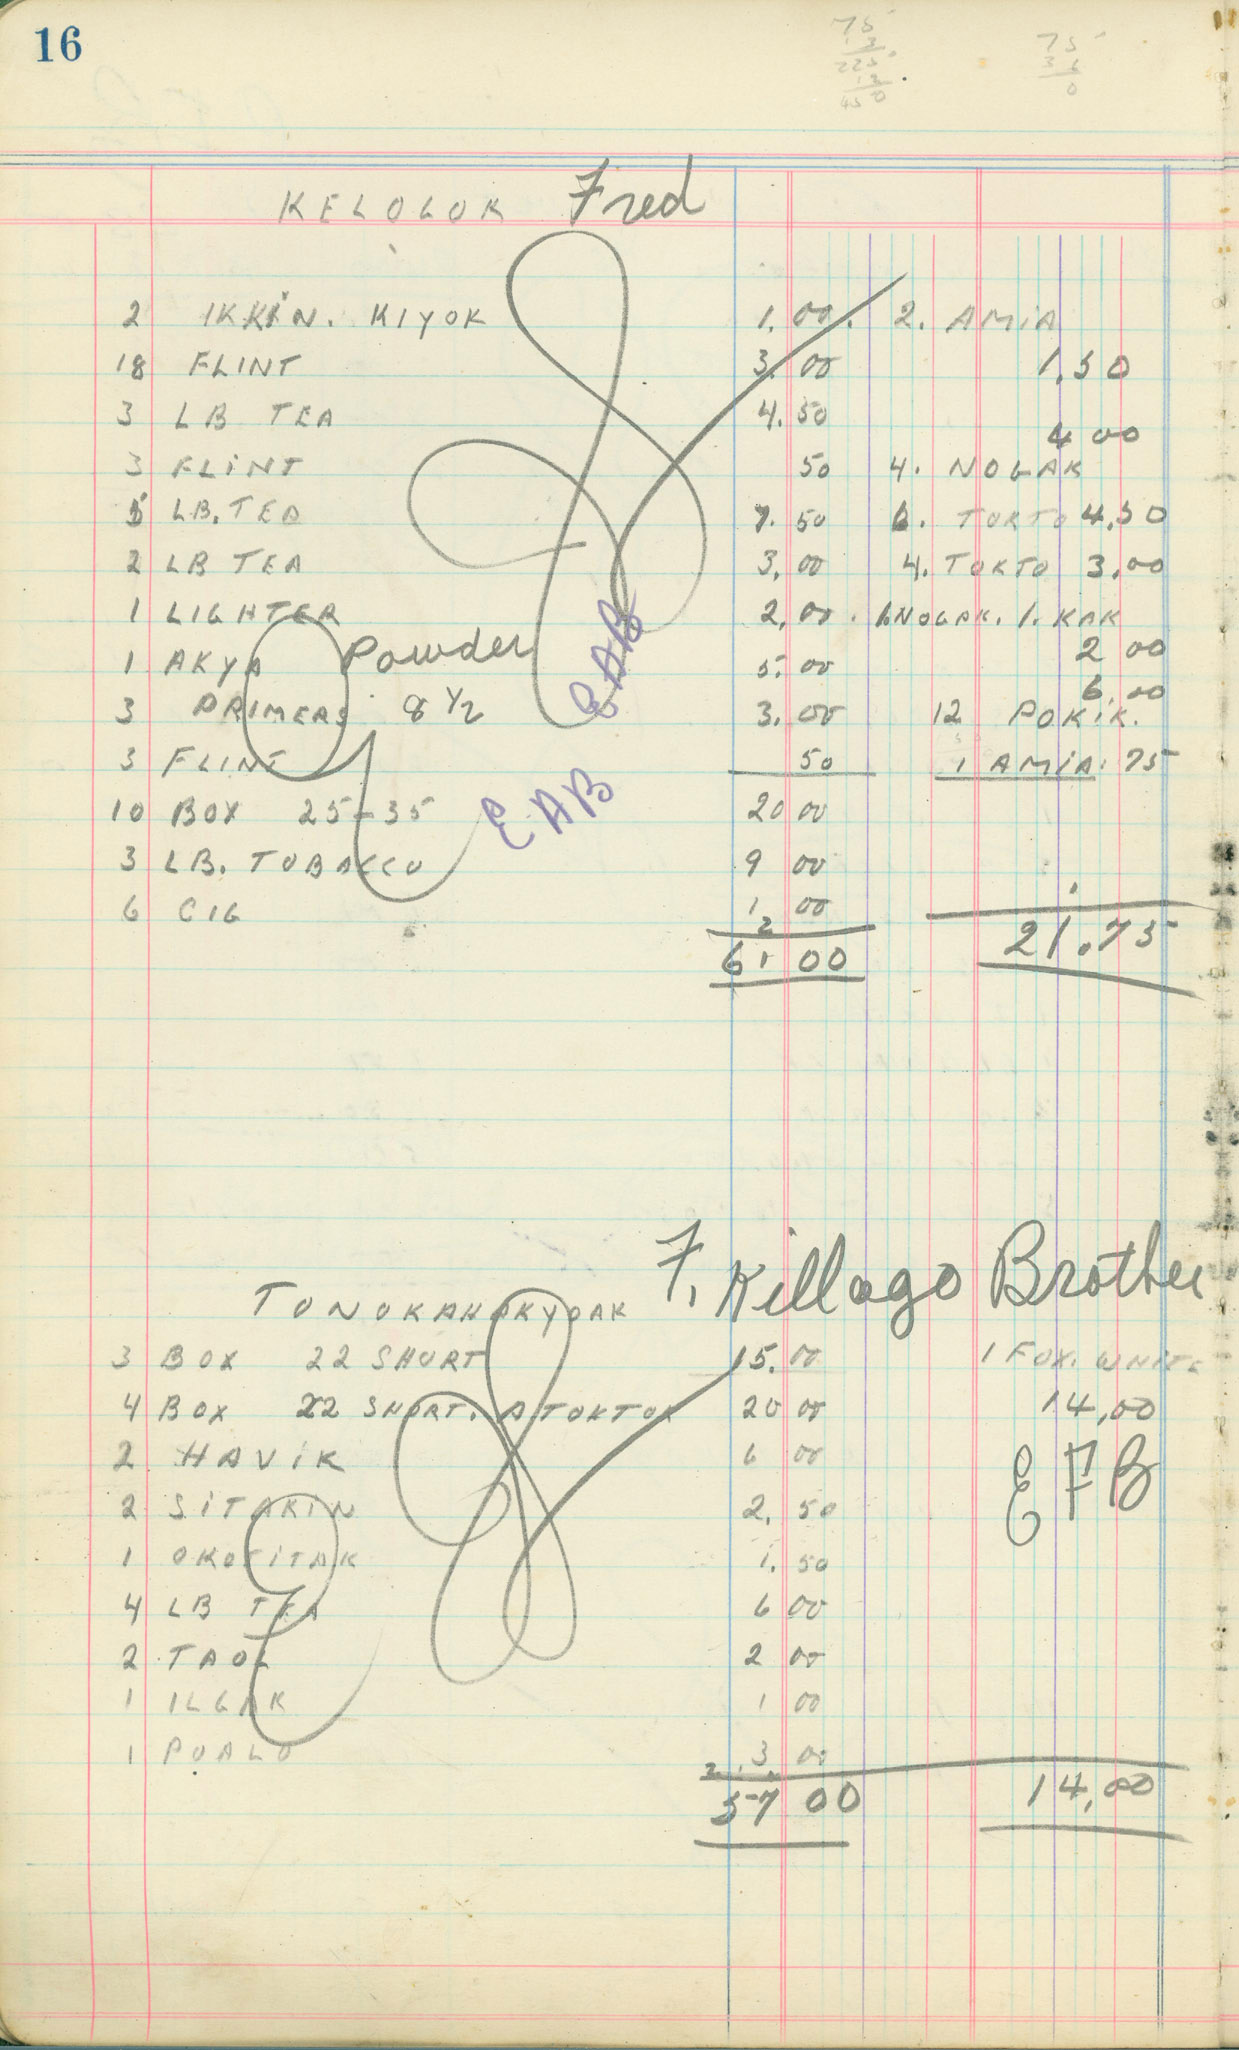 16
75 75
3 36
225 0
12
450
KELOLOK Fred
2 IKKIN. KIYOK 1.00. 2. AMIA
18 FLINT 3.00 1.50
3 LB TEA 4.50
4 00
3 FLINT 50 4. NOGAK
5 LB. TEA 7.50 6. TOKTO 4.50
2 LB TEA 3.00 4. TOKTO 3.00
1 LIGHTER 2.00. 1 NOGAK. 1. KAK
1 AKYA Powder 5.00 2 00
6.00
3 PRIMERS 8 1/2 3.00 12 POKIK.
3 FLINT 50 1 AMIA. 75
EAB
10 BOX 25-35 EAB 20 00
3 LB. TOBACCO 9 00
6 CIG 1 00
2
61 00 21.75
F. Killago Brother
TONOKAHAKYOAK
3 BOX 22 SHORT 15.00 1 FOX. WHITE
4 BOX 22 SHORT. ATOKTOK 20 00 14,00
2 HAVIK 6 00 EFB
2 SITAKIN 2.50
1 OKOTITAK 1.50
4 LB TEA 6 00
2 TAOL 2 00
1 ILGAK 1 00
1 POALO 3 00
2
57 00 14,00